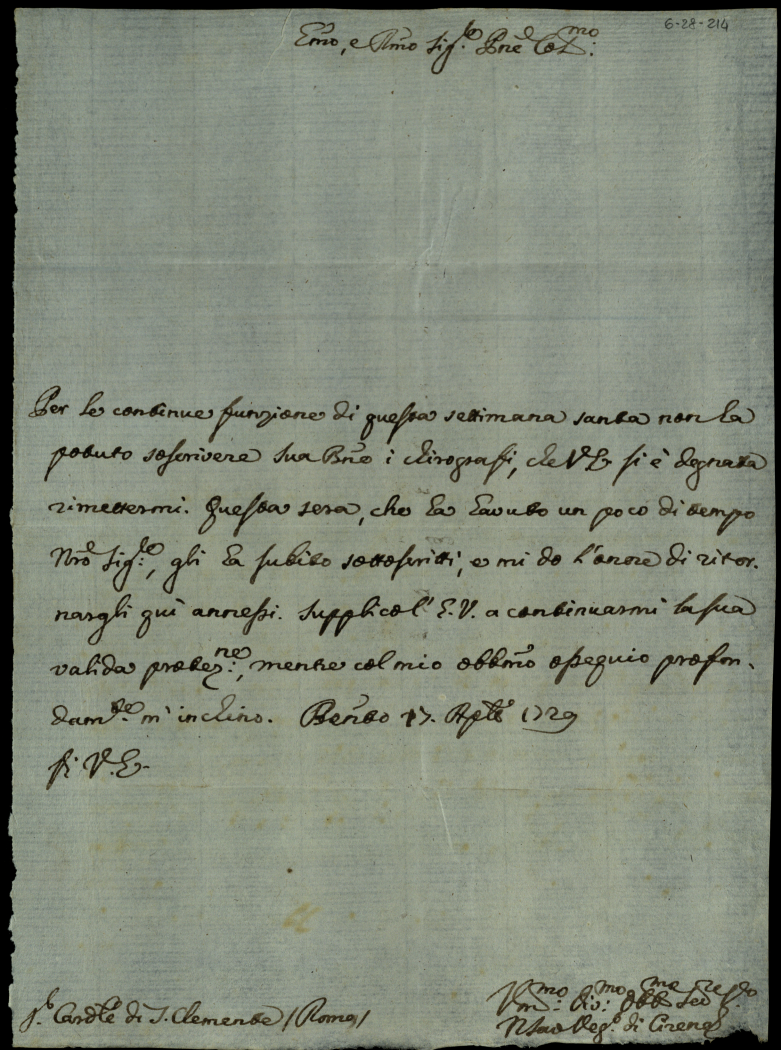 6-28-214
Emo, e Rmo Sig.re Pne Col.mo
Per le continue funzione di questa settimana santa non ha
potuto soscrivere sua Bne i chirografi, che V.E. si è degnata
rimettermi. Questa sera, che ha havuto un poco di tempo
Nro Sig.re, gli ha subito sottoscritti, e mi do l'onore di ritor-
nargli qui annessi. Supplico l'E.V. a continuarmi la sua
valida protez.ne, mentre col mio obbmo ossequio profon-
dam.te m'inchino. Benvto 17. Aple 1729
Di V.E.
S.r Cardle di S. Clemente /Roma/
V.mo Div.mo Obb.mo
di Cirene